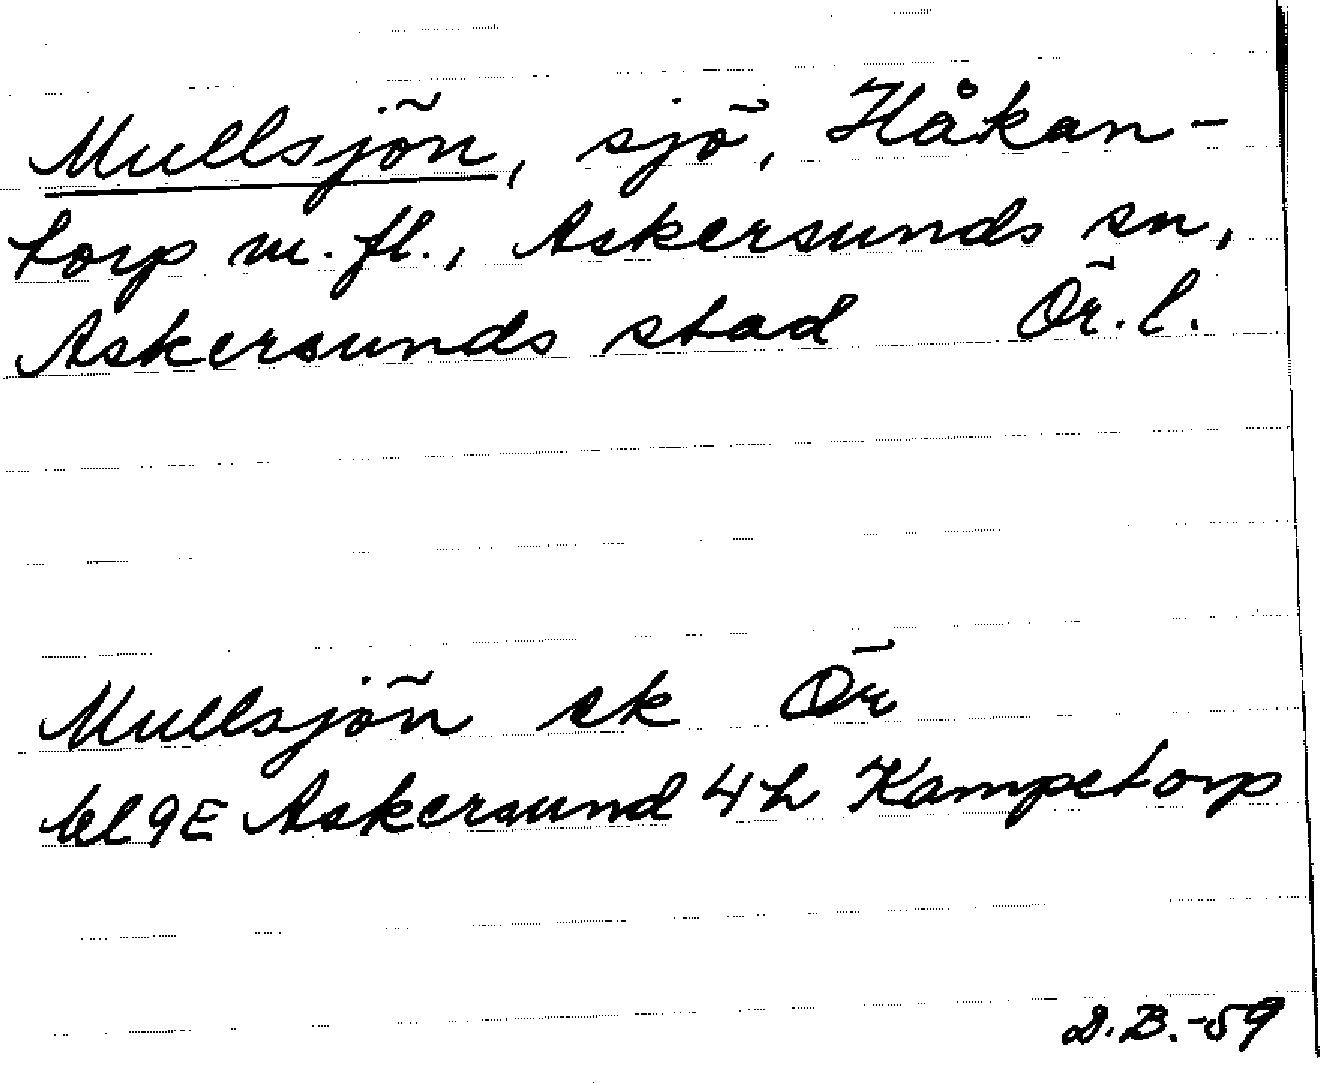 Mullsjön, sjö, Håkan-
torp m.fl., Askersunds sn,
Askersunds stad Ör.l.
Mullsjön ek Ör
bl 9E Askersund 4h Kampetorp
D.B.-59